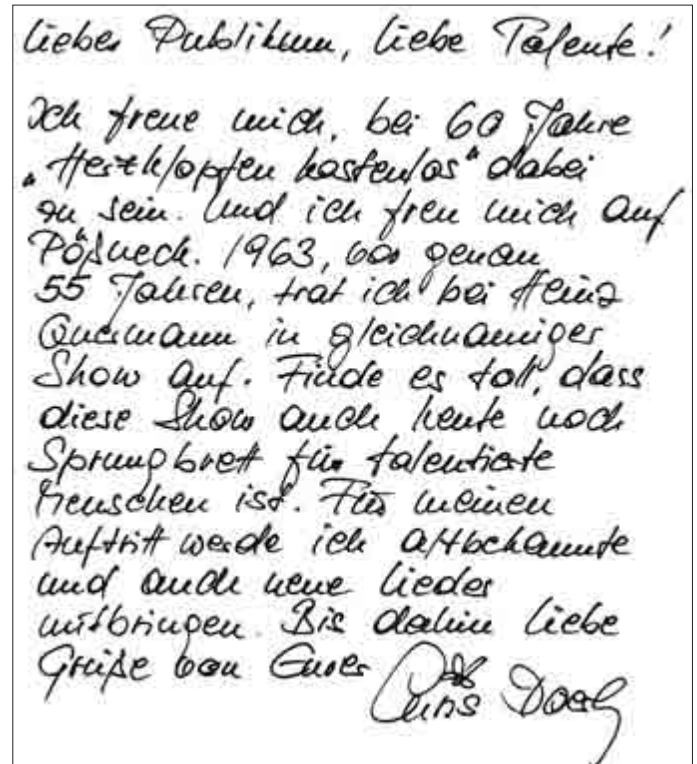 Liebes Publikum, liebe Talente!
Ich freue mich, bei 60 Jahre
„Herzklopfen kostenlos“ dabei
zu sein. Und ich freu mich auf
Pößneck. 1963, vor genau
55 Jahren, trat ich bei Heinz
Quermann in gleichnamiger
Show auf. Finde es toll, dass
diese Show auch heute noch
Sprungbrett für talentierte
Menschen ist. Für meinen
Auftritt werde ich altbekannte
und auch neue Lieder
mitbringen. Bis dahin liebe
Grüße von Eurer
Chris Doerk